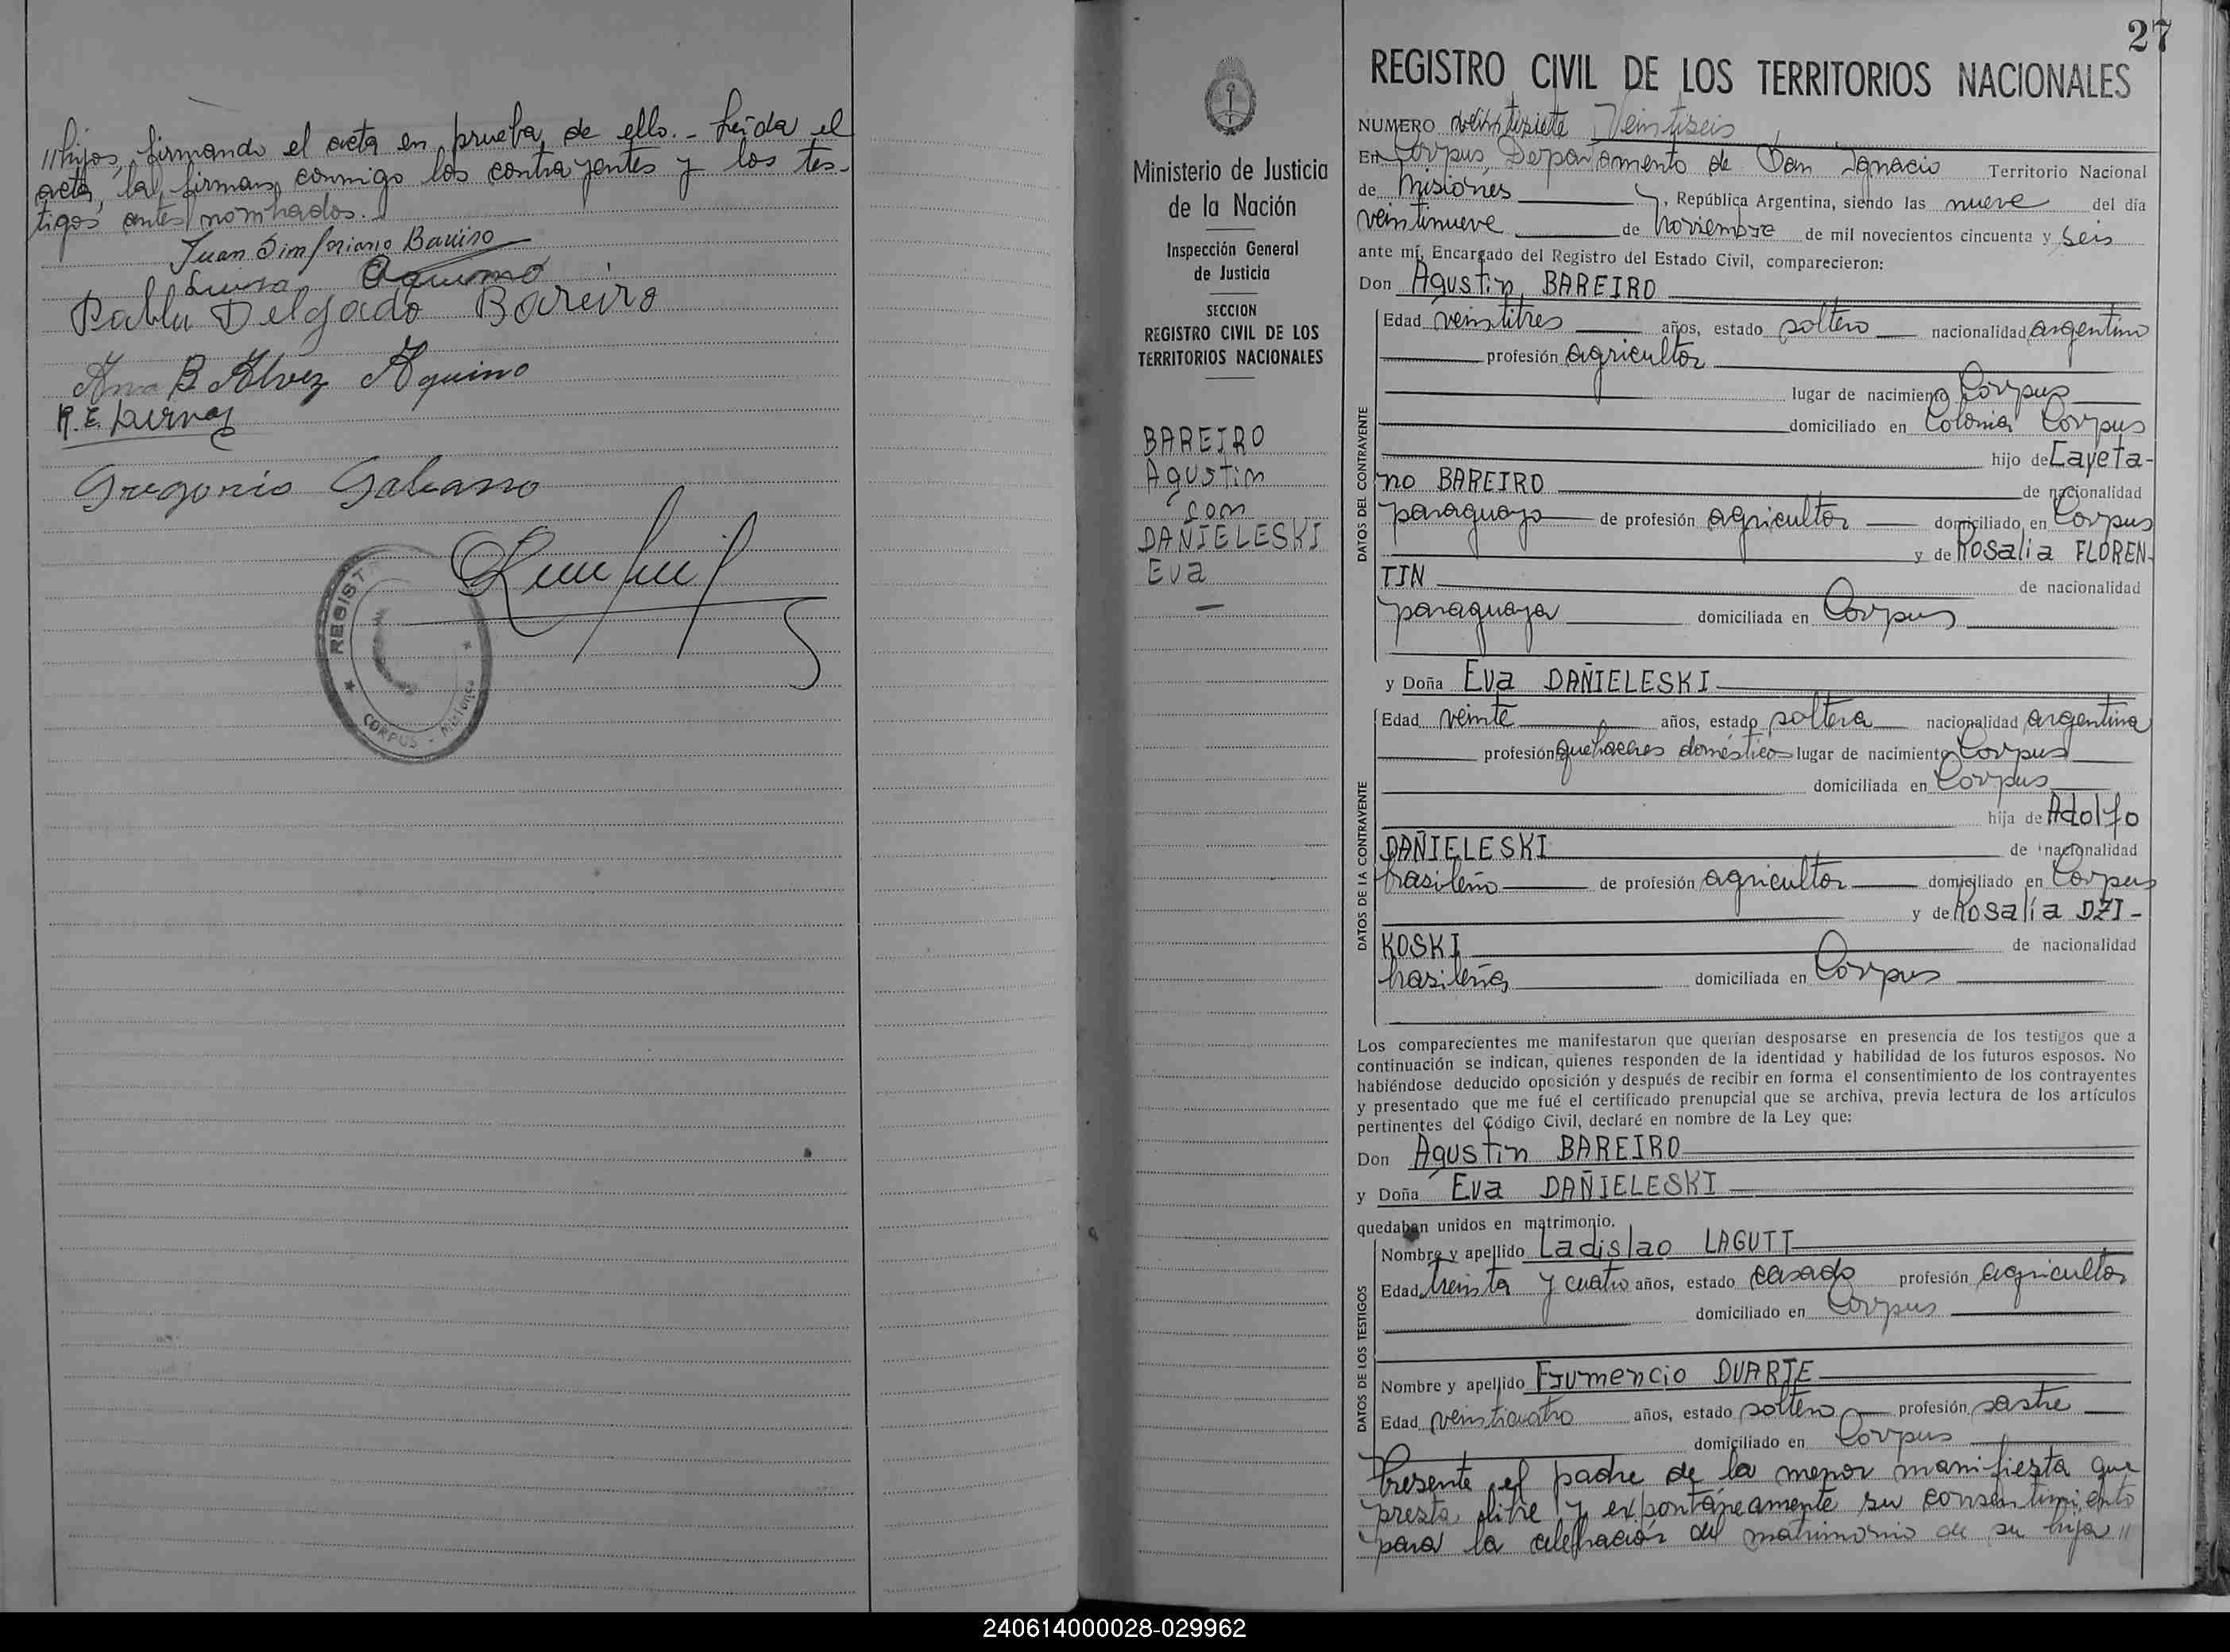 //hijos, firmando el acta en prueba de ello.- Leída el
acta, la firman conmigo los contrayentes y los tes-
tigos antes nombrados.
Juan Simforiano Bareiro
Luisa Aquino
Pabla Delgado Bareiro
Ana B. Alvez Aquino
R. E.
Gregorio Galeano
REGIST
CORPUS - Misiones
Ministerio de Justicia
de la Nación
Inspección General
de Justicia
SECCION
REGISTRO CIVIL DE LOS
TERRITORIOS NACIONALES
BAREIRO
Agustin
con
DAÑIELESKI
Eva
27
REGISTRO CIVIL DE LOS TERRITORIOS NACIONALES
NUMERO veintisiete Veintiseis
En Corpus Departamento de San Ignacio Territorio Nacional
de Misiones, República Argentina, siendo las nueve del día
veintinueve de noviembre de mil novecientos cincuenta y seis
ante mí, Encargado del Registro del Estado Civil, comparecieron:
Don Agustin BAREIRO
DATOS DEL CONTRAYENTE
Edad veintitres años, estado soltero nacionalidad argentino
profesión agricultor
lugar de nacimiento Corpus
domiciliado en Colonia Corpus
hijo de Cayeta-
no BAREIRO de nacionalidad
paraguayo de profesión agricultor domiciliado en Corpus
y de Rosalia FLOREN-
TIN de nacionalidad
paraguaya domiciliada en Corpus
y Doña Eva DAÑIELESKI
DATOS DE LA CONTRAYENTE
Edad veinte años, estado soltera nacionalidad argentina
profesión quehaceres domésticos lugar de nacimiento Corpus
domiciliada en Corpus
hija de Adolfo
DAÑIELESKI de nacionalidad
brasileño de profesión agricultor domiciliado en Corpus
y de Rosalía DZI-
KOSKI de nacionalidad
brasileña domiciliada en Corpus
Los comparecientes me manifestaron que querían desposarse en presencia de los testigos que a
continuación se indican, quienes responden de la identidad y habilidad de los futuros esposos. No
habiéndose deducido oposición y después de recibir en forma el consentimiento de los contrayentes
y presentado que me fué el certificado prenupcial que se archiva, previa lectura de los artículos
pertinentes del Código Civil, declaré en nombre de la Ley que:
Don Agustin BAREIRO
y Doña Eva DAÑIELESKI
quedaban unidos en matrimonio.
DATOS DE LOS TESTIGOS
Nombre y apellido Ladislao LAGUTT
Edad treinta y cuatro años, estado casado profesión agricultor
domiciliado en Corpus
Nombre y apellido Frumencio DUARTE
Edad veinticuatro años, estado soltero profesión sastre
domiciliado en Corpus
Presente el padre de la menor manifiesta que
presta libre y expontáneamente su consentimiento
para la celebración del matrimonio de su hija //
240614000028-029962